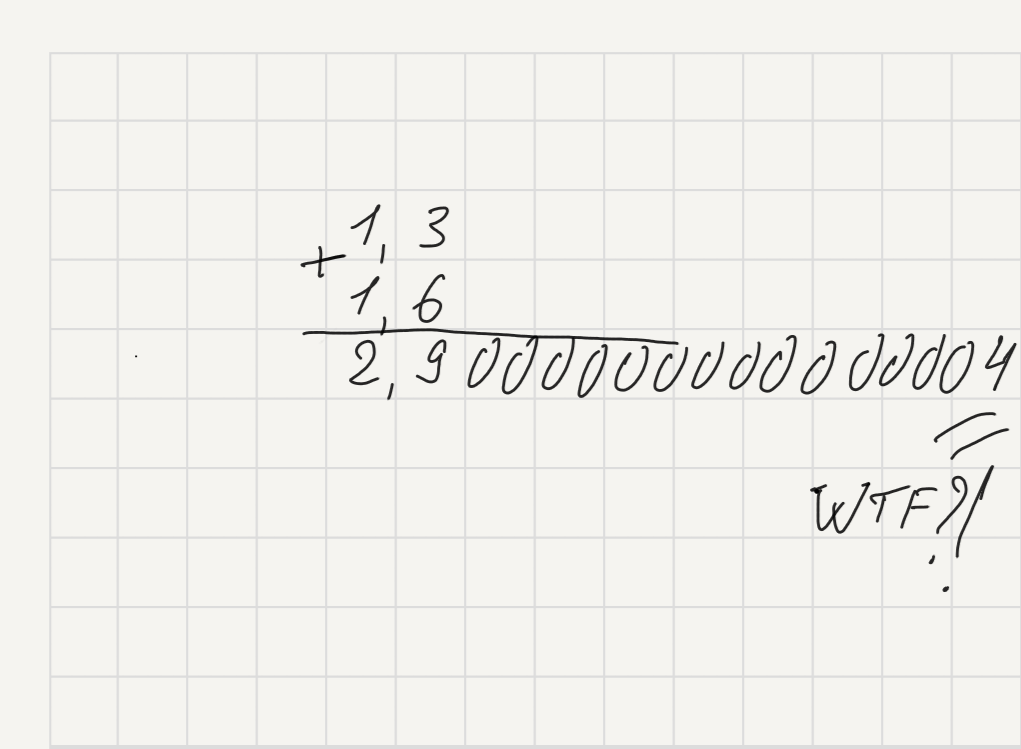 1,3
+
1,6
2,9000000000000004
WTF?!